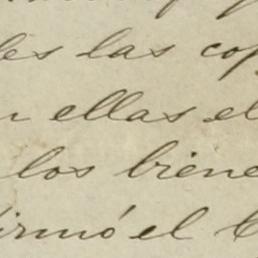 les las cop
n ellas el
los biene
firmó el C